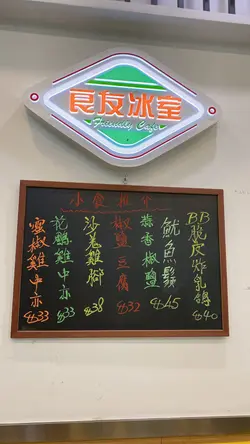 良友冰室
Friendly Cafe
小食推介
蜜椒雞中亦
$33
花雕雞中亦
$33
沙薑雞腳
$38
椒鹽豆腐
$32
蒜香椒鹽
魷魚鬚
$45
BB脆皮炸乳鴿
$40